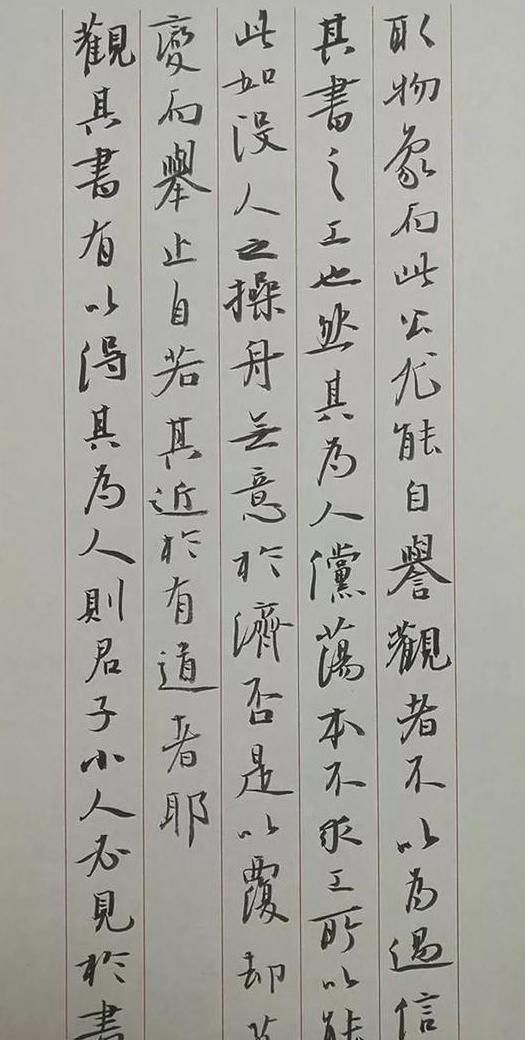 取物象而此公尤能自譽觀者不以為過信
其書之工也然其為人儻蕩本不求工所以能
此如沒人之操舟無意於濟否是以覆却萬
變而舉止自若其近於有道者耶
觀其書有以得其為人則君子小人必見於書